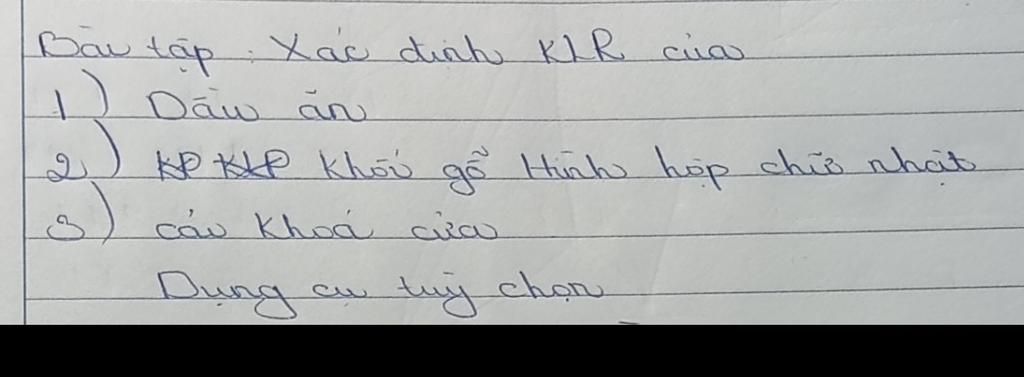 Bài tập : Xác định KLR của
1) Dầu ăn
2) Khối gỗ Hình hộp chữ nhật
3) cái Khoá cửa
Dụng cụ tuỳ chọn